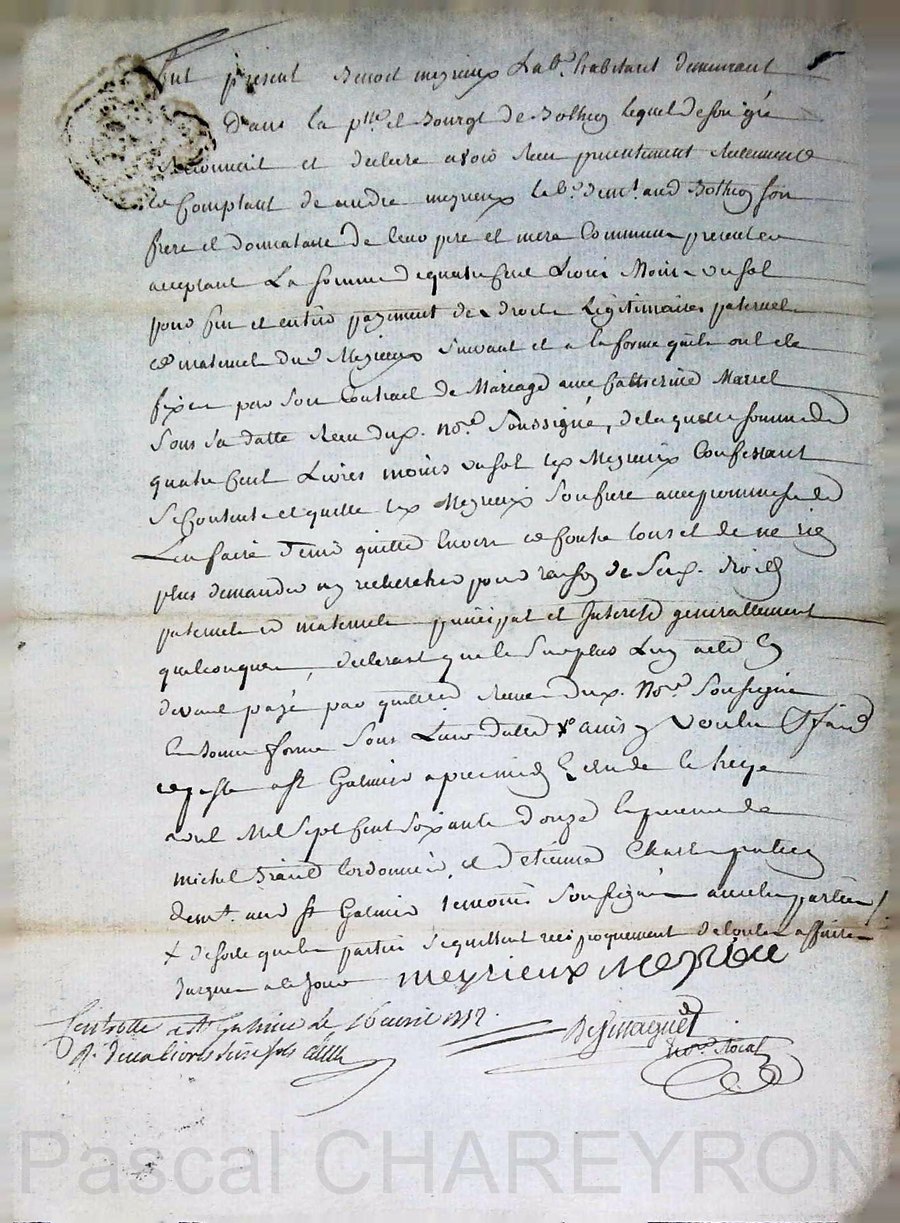 fut present Benoit meyrieux Lab.r habitant demeurant
Dans la p.sse et Bourgt de Botheo lequel de son gré
reconnait et declare avoir Receu presentement Reellement
et Comptant de andre meyrieux lab.r dem.t aud Botheo son
frere et donnataire de leur pere et mere Commun present et
acceptant La somme de quatre cent Livres Moins un sol
pour fin et entier payement des droits Legitimaires paternels
et maternel dud Meyrieux suivant et a la forme quils ont ete
fixes par son Contrat de Mariage avec Catherine Marcel
sous sa datte Receu du no.re soussigné, de laquelle somme de
quatre Cent Livres moins un sol Meyrieux Confessant
se Contente et quitte Meyrieux son frere avec promesse de
L'en faire tenir quitte Envers et Contre tous et de ne rien
plus demander ny rechercher pour raison de ses droits
paternels et maternels principal et Interets generallement
quelconques, declarant que le surplus Luy a eté
devant payé par quittance Receue du no.re soussigné
En bonne forme sous Leur datte + ainsy voulu &
et passé a St Galmier apres midy Le treize
avril Mil sept Cent soixante douze En presence de
michel Cordonnier, et d'etienne praticien
dem.t aud St Galmier temoins soussignés avec les parties /
+ de sorte que les parties se quittent reciproquement de toutes affaires
jusques a ce jour meyrieux Meyrieu
Controllé a St Galmier le 16 avril 1772.
R. deux livres
no.re Royal
Pascal CHAREYRON